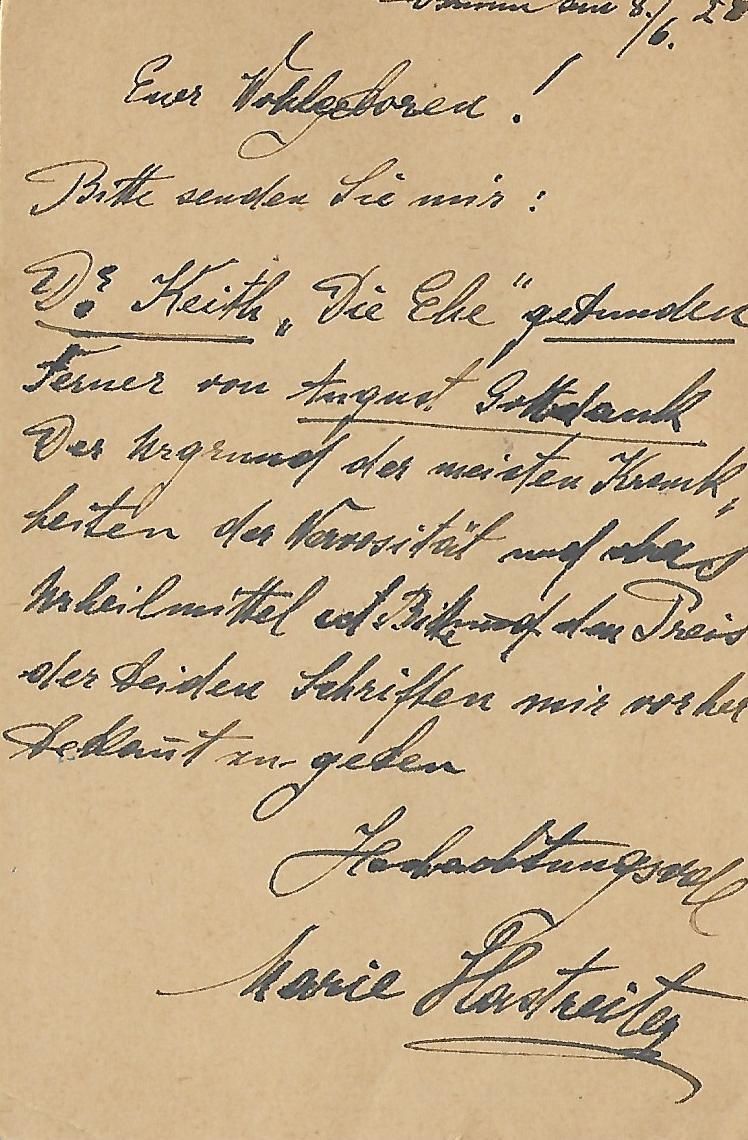 am 8./6. 28
Euer Wohlgeboren!
Bitte senden Sie mir:
Dr. Keith „Die Ehe" gebunden
Ferner von August Gottdank
Der Urgrund der meisten Krank„
heiten der Nervosität und
Urheilmittel Bitte den Preis
der beiden Schriften mir vorher
bekañt zu geben
Hochachtungsvoll
Marie Hastreiter